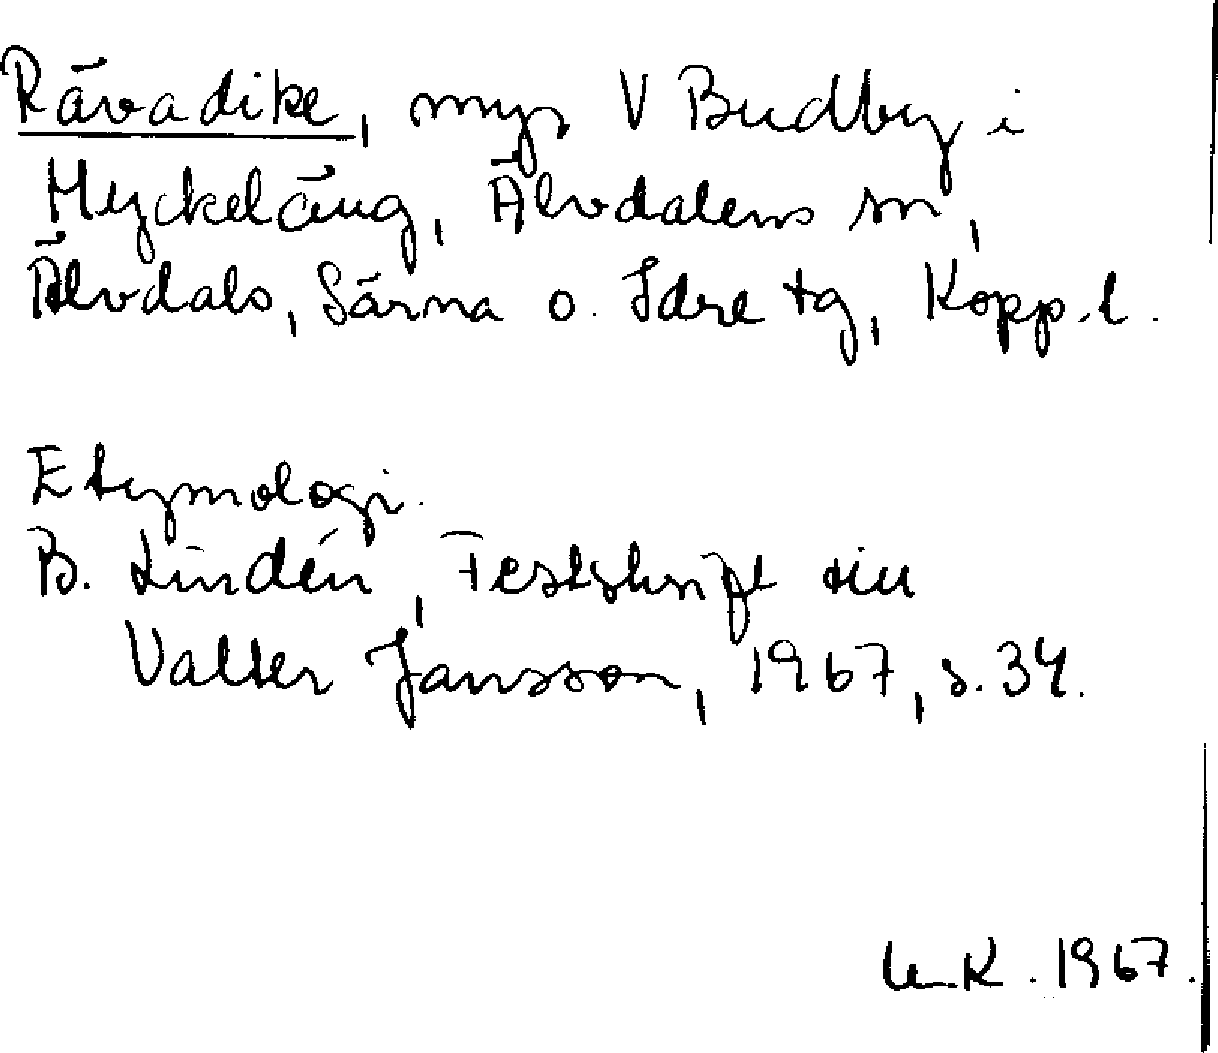 Rävadike, myr V Budby i
Myckeläng, Älvdalens sn,
Älvdals, Särna o. Idre tg, Kopp. l.
Etymologi.
B. Lindén, Festskrift till
Valter Jansson, 1967, s. 34.
K. 1967.